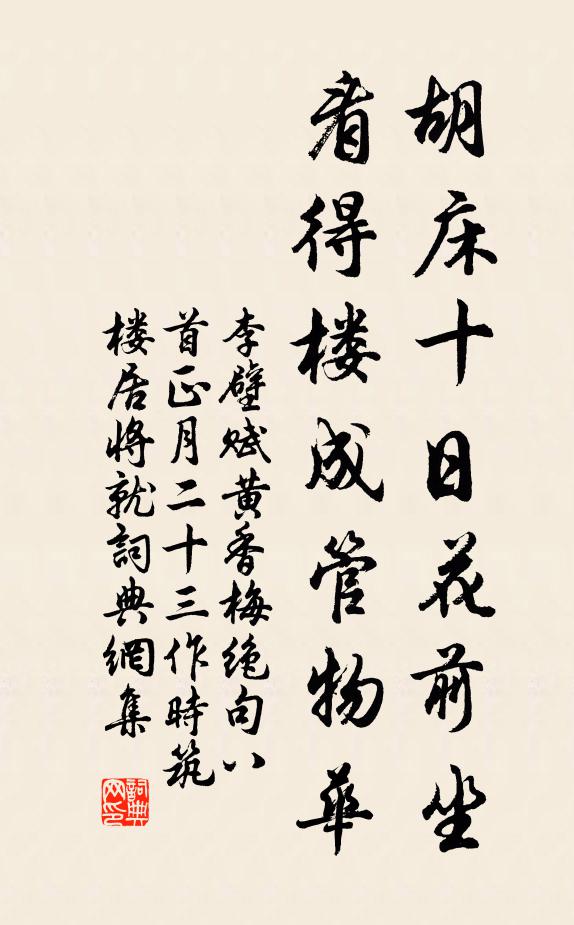 胡床十日花前坐
看得楼成管物华
李壁赋黄香梅绝句八
首正月二十三作時筑
楼居将就詞典網集
詞典网印